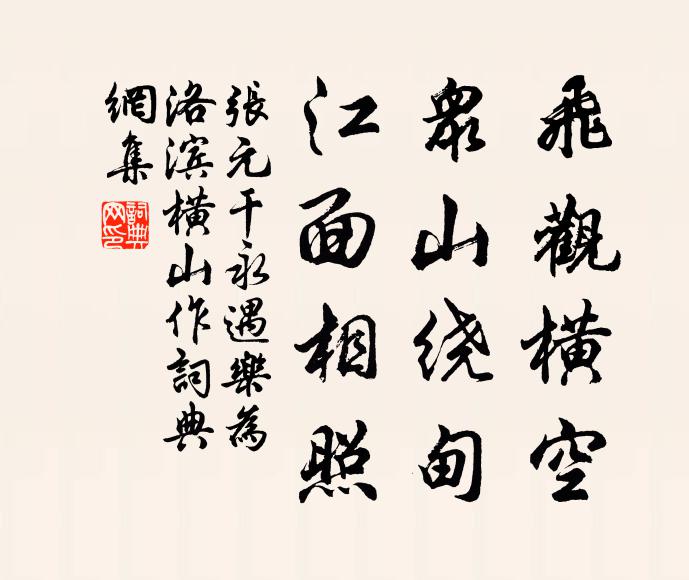 飛觀橫空
眾山绕甸
江面相照
張元干永遇樂為
洛滨橫山作詞典
網集
詞典
网印